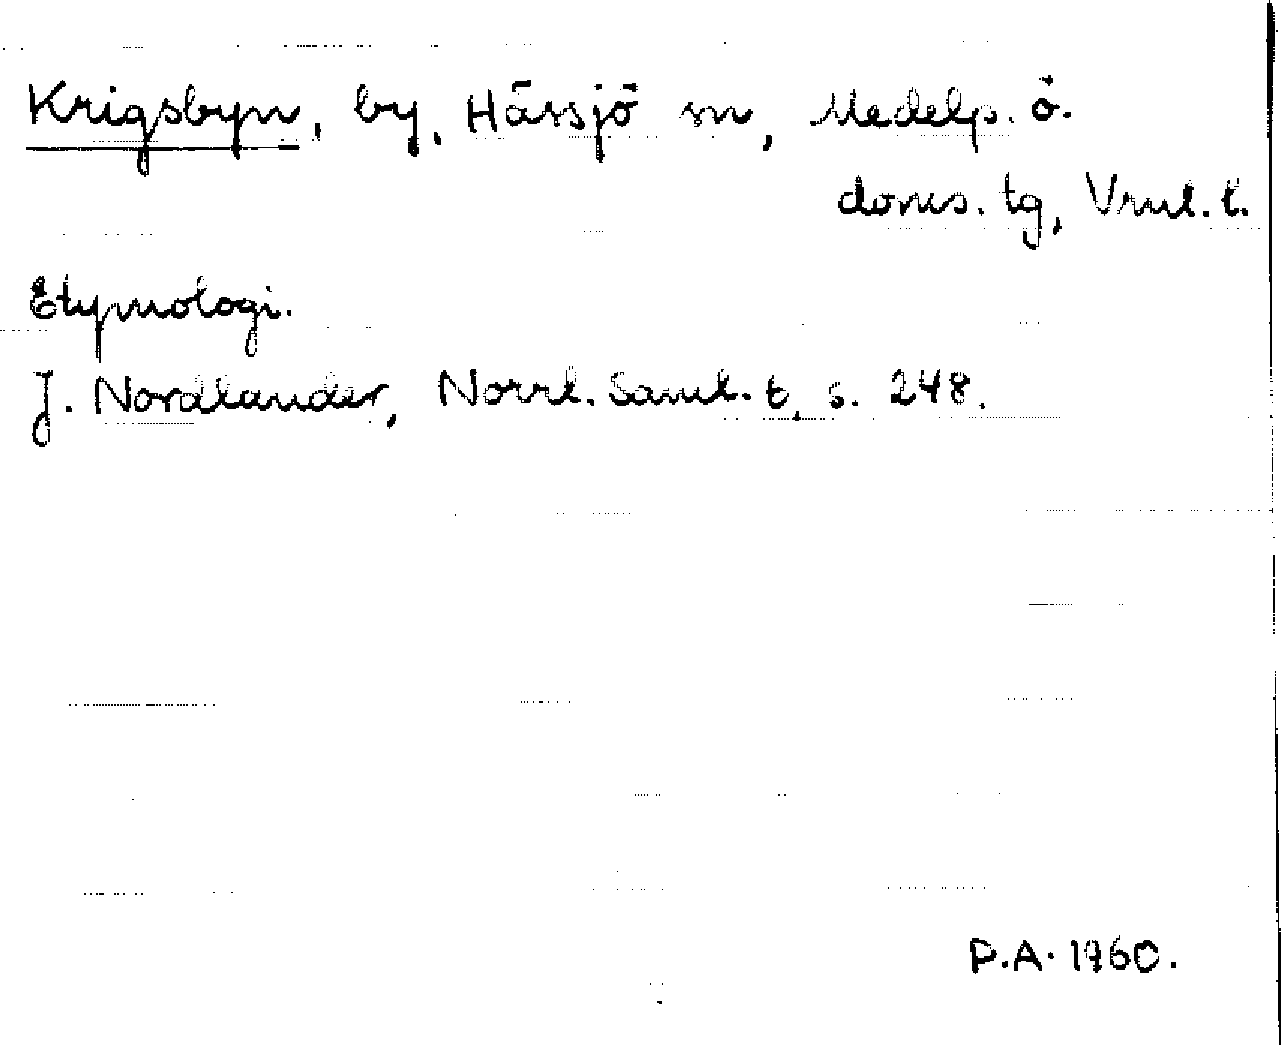 Krigsbyn, by, Hässjö sn, Medelp. ö.
doms. tg, Vrnl. l.
Etymologi.
J. Nordlander, Norrl. Saml. s. 248.
P.A. 1960.